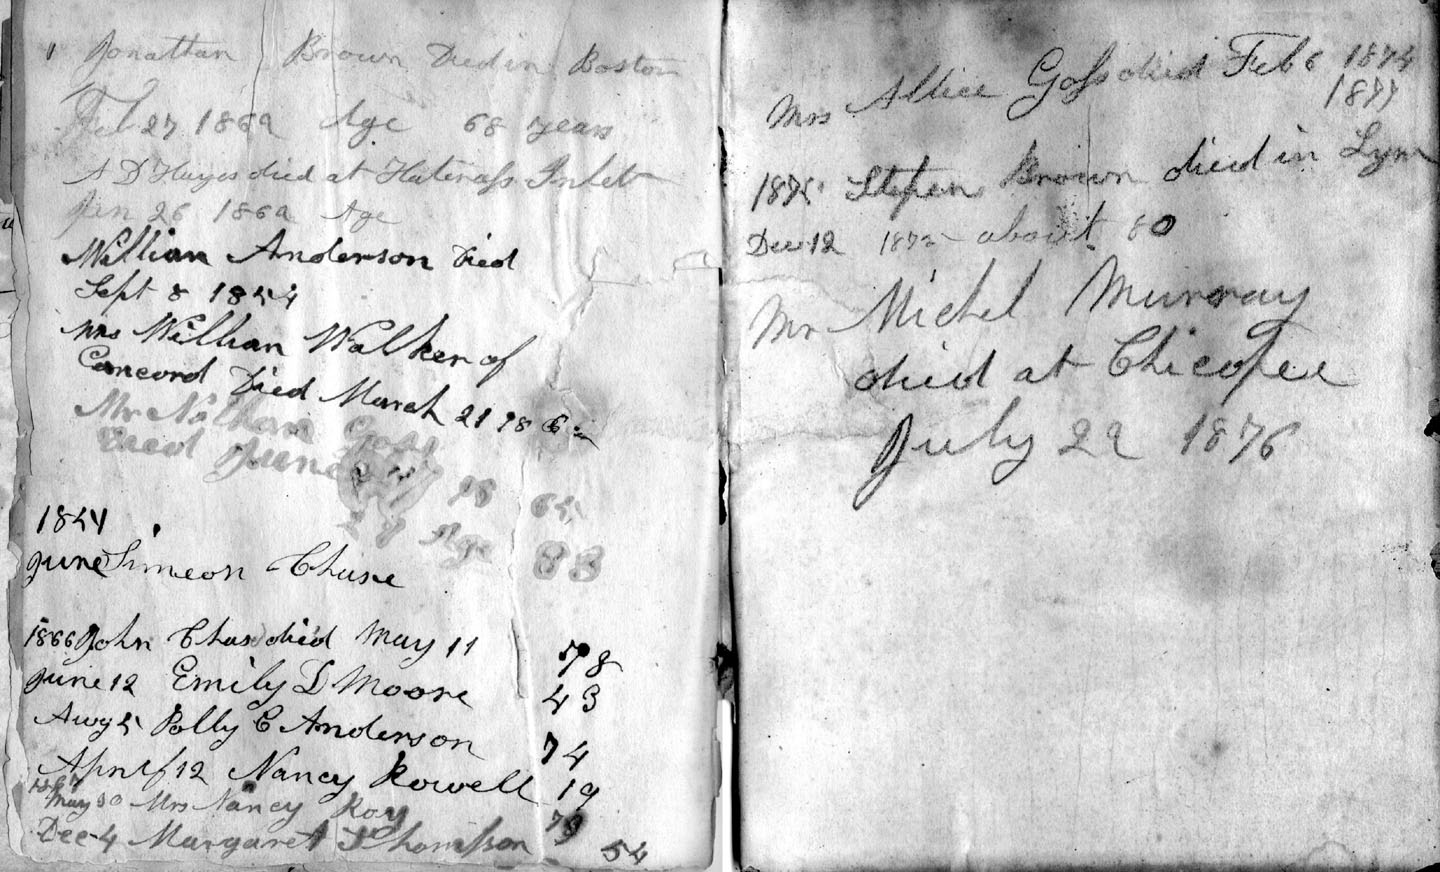 Jonathan Brown Died in Boston
Feb 27 1862 Age 68 years
A D Hayes died at Haterass Inlet
Jan 26 1862 Age
William Anderson Died
Sept 8 1854
Mrs William Walker of
Concord Died March 21 186
Mr Nathan Goss
Died June 18 65
Age 88
1854
June Simeon Chase
1866 John Chas died May 11 78
June 12 Emily D Moore 43
Awg 5 Polly C Anderson 74
April 12 Nancy Rowell 19
1867
May 30 Mrs Nancy Roy 79
Dec 4 Margaret Thompson 54
Mrs Allice Goss died Feb 6 1874
1877
1875 Stepen Brown died in Lyn
Dec 12 1875 about 80
Mr Michel Murray
died at Chicopee
July 22 1876